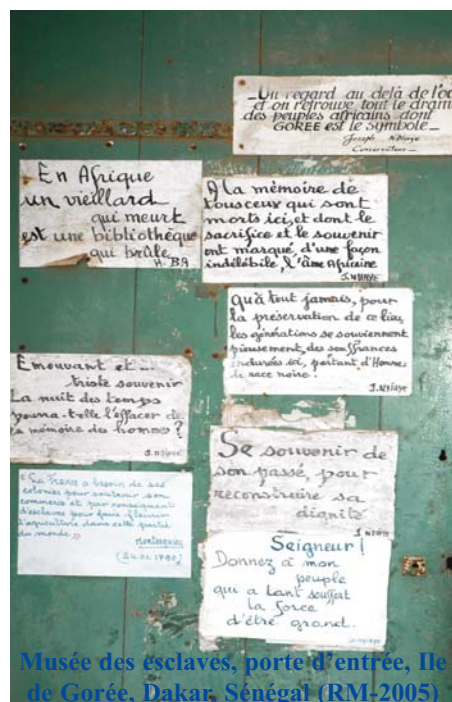 _Un regard au delà de l'oc
et on retrouve tout le dram
des peuples africains dont
GOREE est le symbole_
Joseph N'Diaye
Conservateur_
En Afrique
un vieillard
qui meurt
est une bibliothèque
qui brûle
H. BA
A la mémoire de
tousceux qui sont
morts ici, et dont le
sacrifice et le souvenir
ont marqué, d'une façon
indélébile, l'âme Africaine
J. NDIAYE
Qu'à tout jamais, pour
la préservation de ce lieu,
les générations se souviennent
pieusement, des souffrances
endurées ici, par tant d'Hommes
de race noire.
J. NDiaye
Emouvant et ...
triste souvenir
La nuit des temps
pourra-t-elle l'effacer de
la mémoire des hommes ?
J. NDiaye
Se souvenir de
son passé, pour
reconstruire sa
dignité
J. NDIAYE
"La France a besoin de ses
colonies pour soutenir son
commerce et par conséquent
d'esclaves pour faire fleurir
l'agriculture dans cette partie
du monde."
(24.01.1740)
Seigneur !
Donnez à mon
peuple
qui a tant souffert
la force
d'être grand.
Musée des esclaves, porte d'entrée, Ile
de Gorée, Dakar, Sénégal (RM-2005)